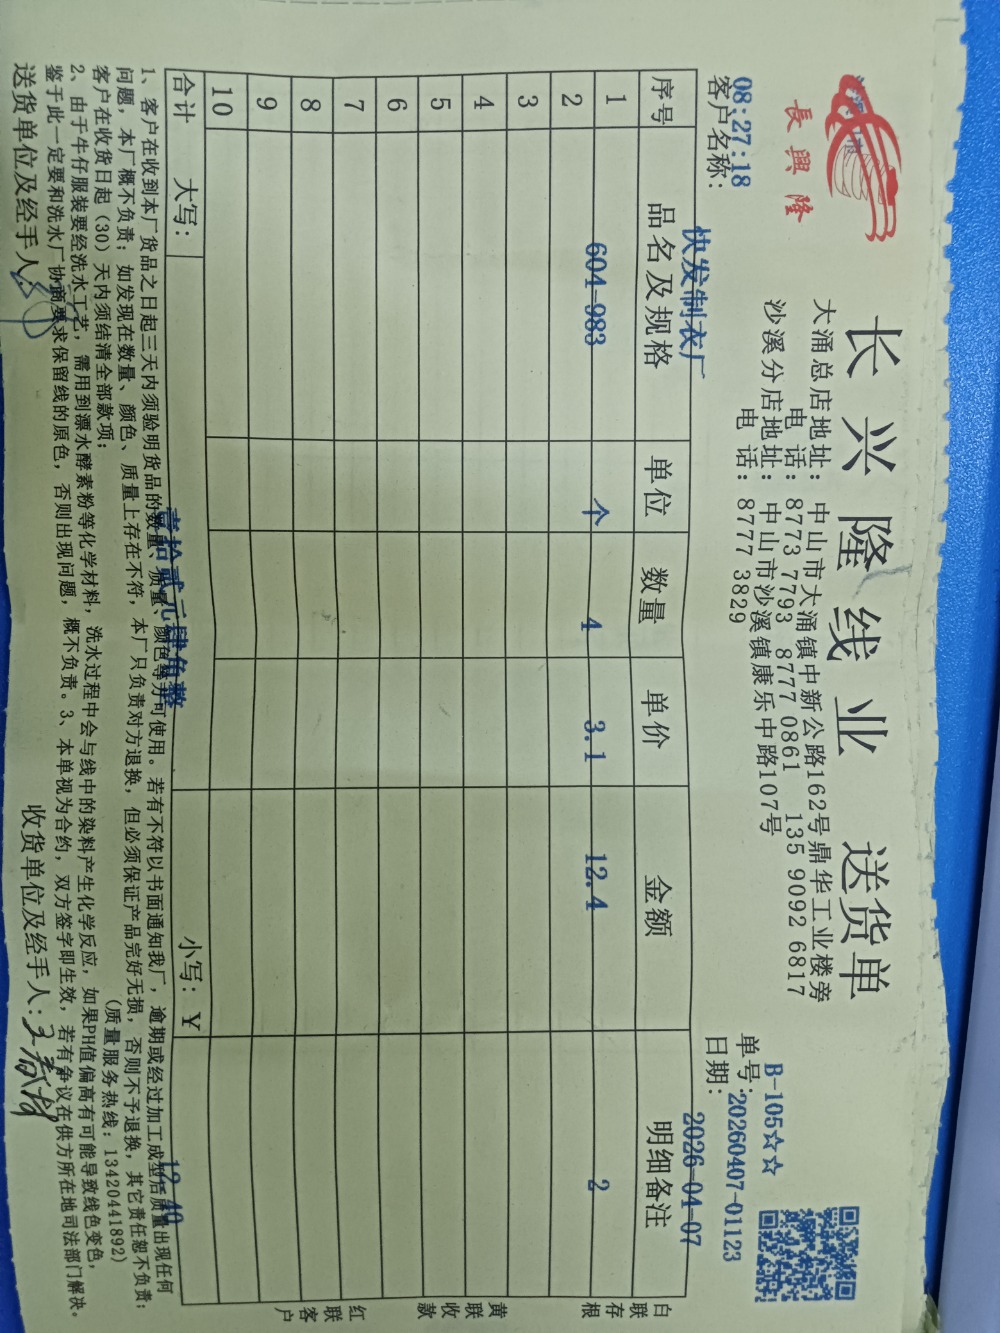 長興隆
长兴隆线业 送货单
大涌总店地址：中山市大涌镇中新公路162号鼎华工业楼旁
电 话：8773 7793 8777 0861 135 9092 6817
沙溪分店地址：中山市沙溪镇康乐中路107号
电 话：8777 3829
B-105☆☆
单号：20260407-01123
08:27:18
客户名称：快发制衣厂
日期：2026-04-07
序号 品名及规格 单位 数量 单价 金额 明细备注
1 604-983 个 4 3.1 12.4 2
2
3
4
5
6
7
8
9
10
合计 大写：壹拾贰元肆角整 小写：Y 12.40
白联存根
黄联收款
红联客户
1、客户在收到本厂货品之日起三天内须验明货品的数量、质量、颜色等方可使用。若有不符以书面通知我厂，逾期或经过加工成型后质量出现任何
问题，本厂概不负责；如发现在数量、颜色、质量上存在不符，本厂只负责对方退换，但必须保证产品完好无损，否则不予退换，其它责任恕不负责；
客户在收货日起（30）天内须结清全部款项； （质量服务热线：13420441892）
2、由于牛仔服装要经洗水工艺，需用到漂水酵素粉等化学材料，洗水过程中会与线中的染料产生化学反应，如果PH值偏高有可能导致线色变色，
鉴于此一定要和洗水厂协商要求保留线的原色，否则出现问题，概不负责。3、本单视为合约，双方签字即生效，若有争议在供方所在地司法部门解决。
送货单位及经手人：
收货单位及经手人：